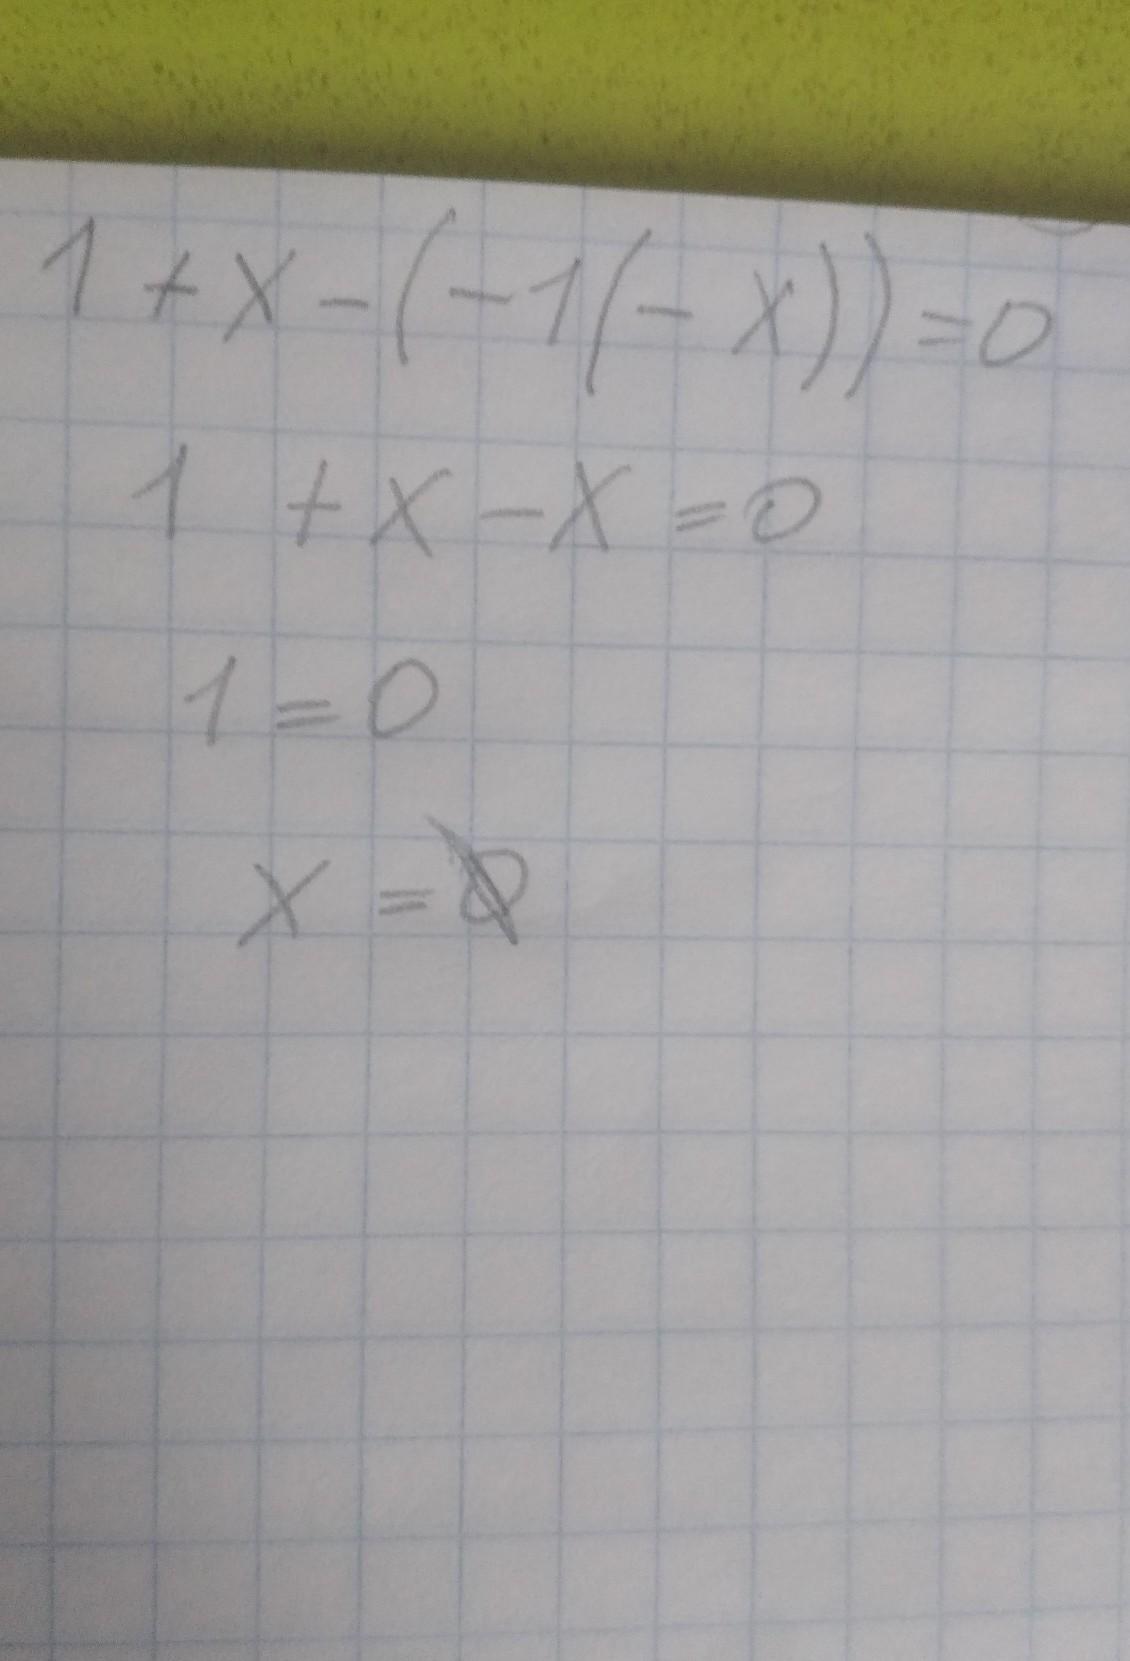 1 + x - (-1(-x)) = 0
1 + x - x = 0
1 = 0
x = Ø